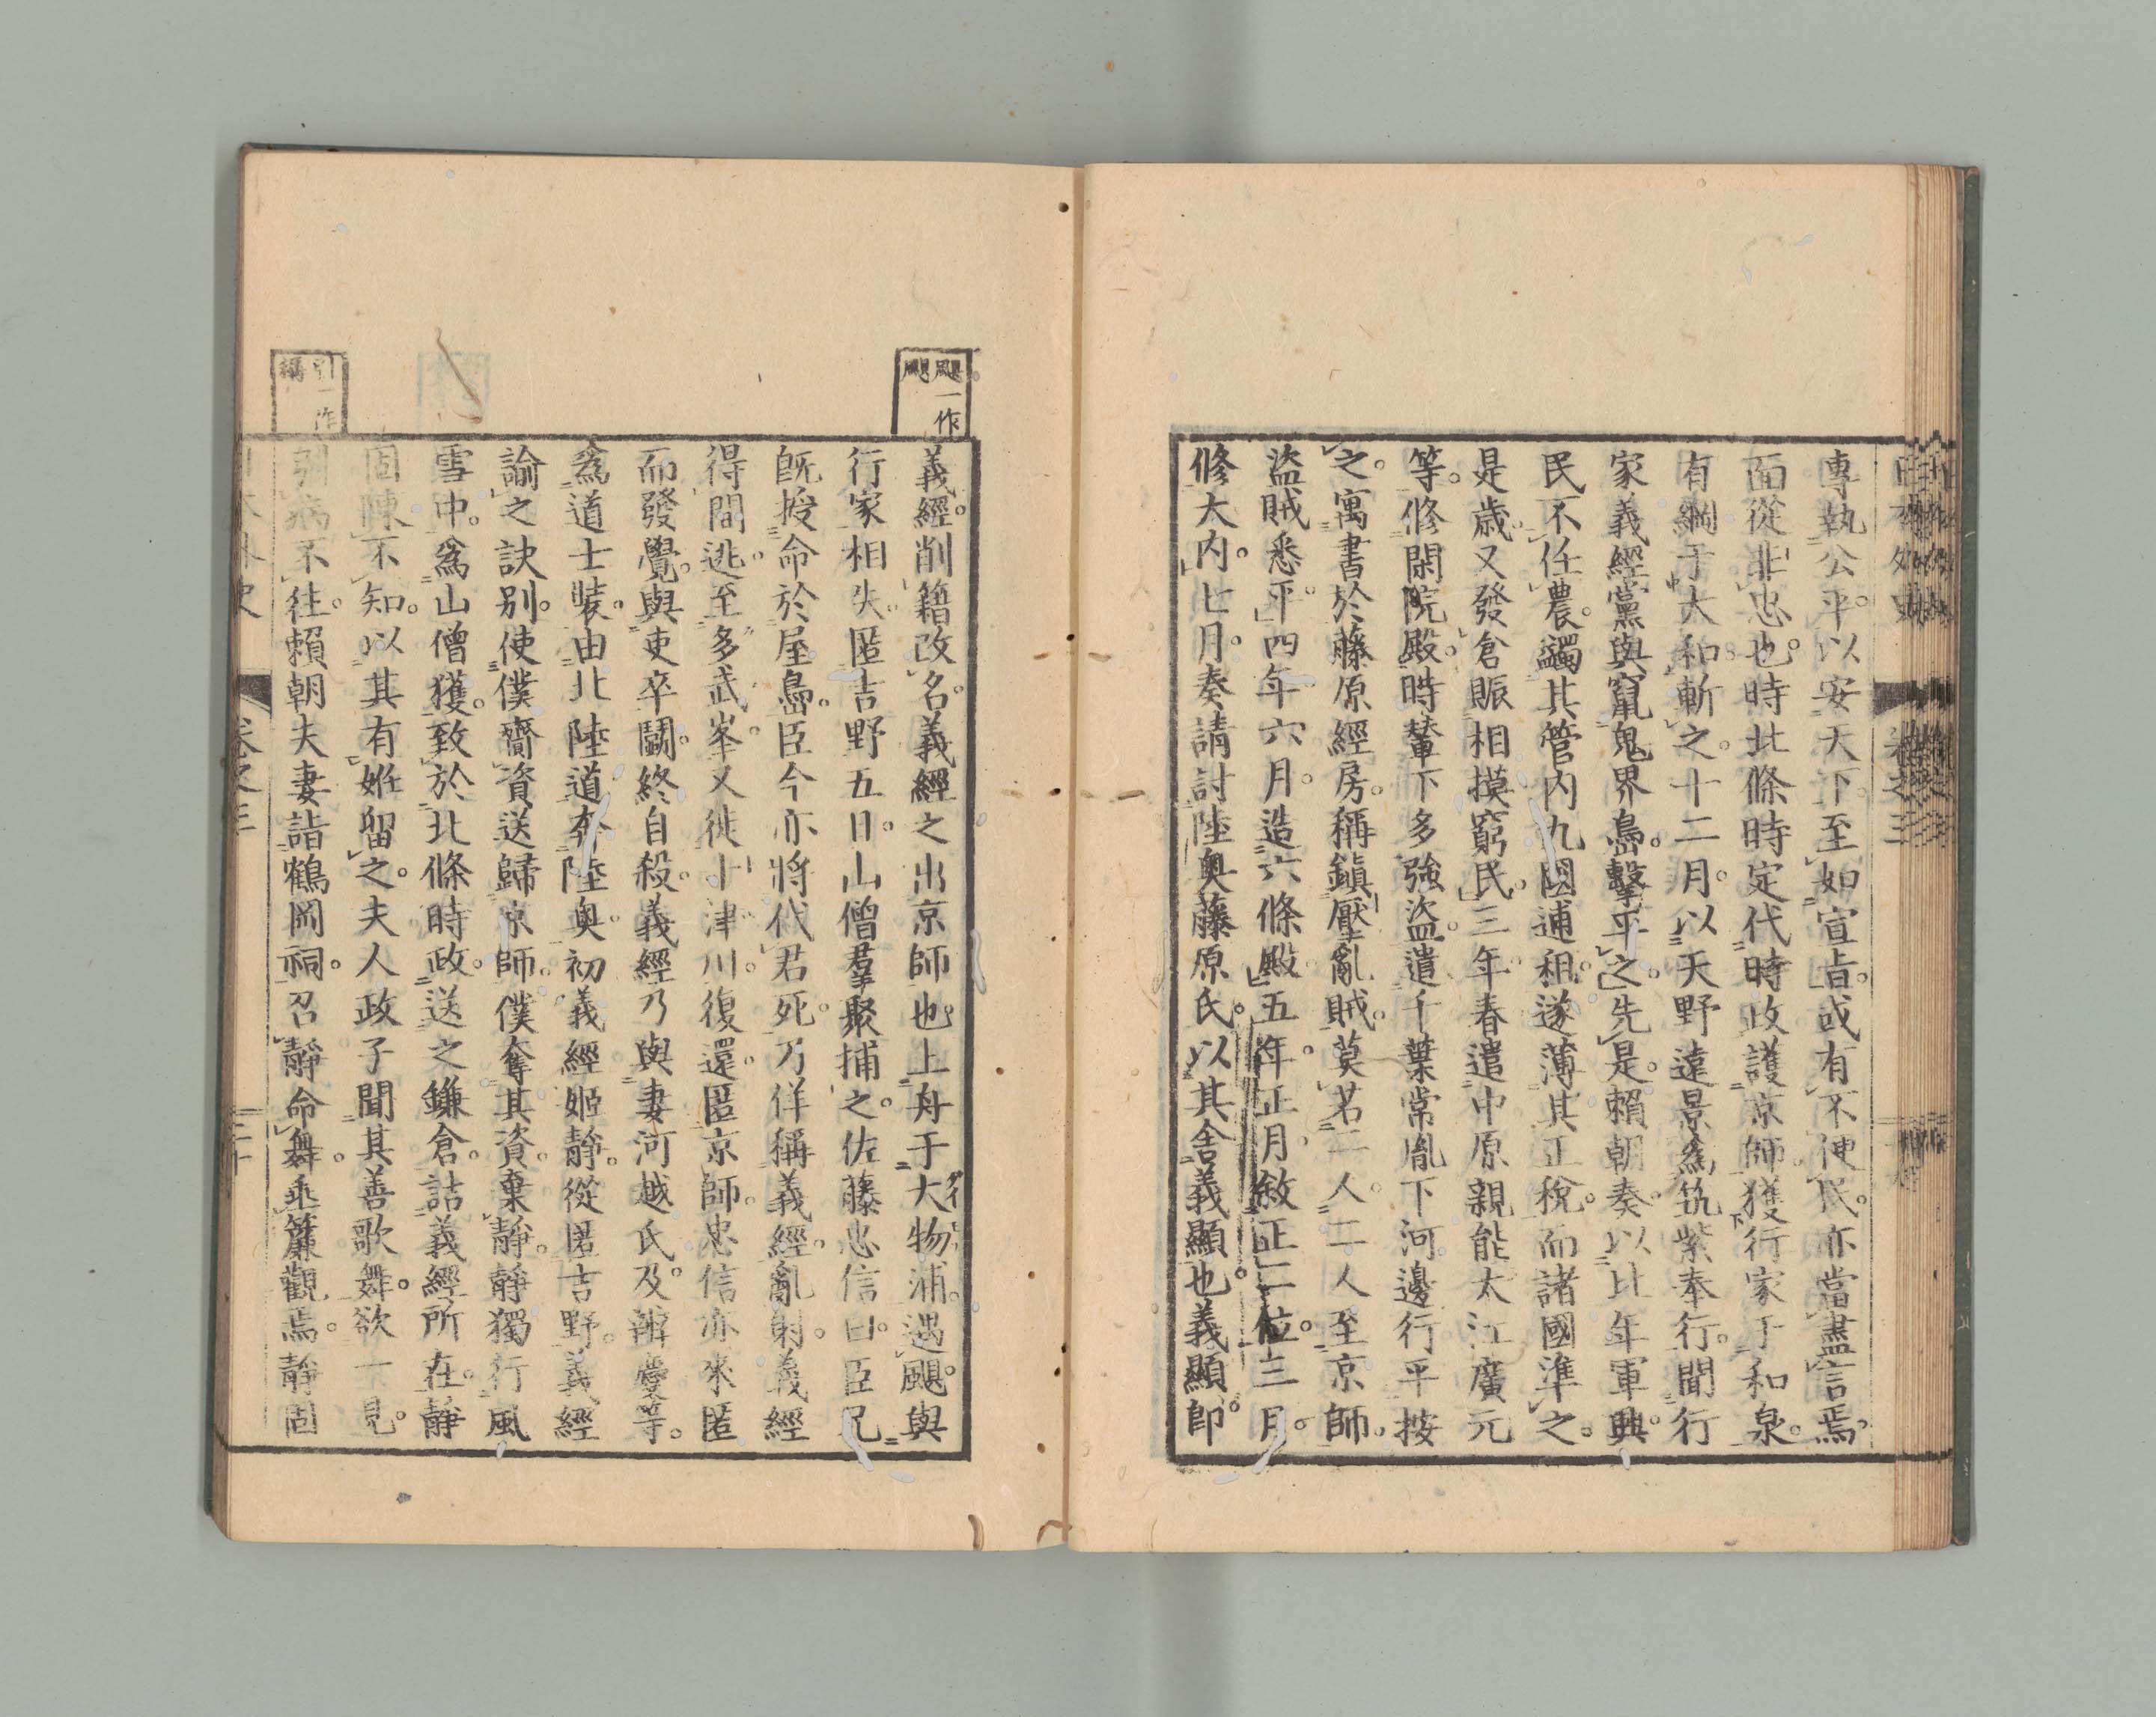 專執公平。以安天下。至如宣旨。或有不便民。亦當盡言焉。
面從非忠也。時北條時定代時政護京師。獲行家于和泉。
有綱于大和斬之。十二月。以天野遠景爲筑紫奉行。聞行
家義經黨與竄鬼界島。擊平之。先是。賴朝奏。以比年軍興。
民不任農。蠲其管內九國逋租。遂薄其正稅。而諸國準之。
是歲。又發倉賑相摸窮民。三年春。遣中原親能大江廣元
等。修閑院殿。時輦下多強盜。遣千葉常胤下河邊行平按
之。寓書於藤原經房。稱鎭壓亂賊。莫若二人。二人至京師。
盜賊悉平。四年六月。造六條殿。五年正月。敘正二位。三月。
修大內。七月。奏請討陸奧藤原氏。以其舍義顯也。義顯卽
日本外史
卷之三
義經。削籍改名。義經之出京師也。上舟于大物浦。遇颶。與
行家相失。匿吉野五日。山僧羣聚捕之。佐藤忠信曰。臣兄
既授命於屋島。臣今亦將代君死。乃佯稱義經。亂射。義經
得間逃。至多武峯。又徙十津川。復還。匿京師。忠信亦來匿
而發覺。與吏卒鬭。終自殺。義經乃與妻河越氏。及辨慶等。
爲道士裝。由北陸道奔陸奧。初義經姬靜。從匿吉野。義經
諭之訣別。使僕齎資送歸京師。僕奪其資。棄靜。靜獨行風
雪中。爲山僧獲。致於北條時政。送之鎌倉。詰義經所在。靜
固陳不知。以其有姙留之。夫人政子聞其善歌舞。欲一見。
引病不往。賴朝夫妻詣鶴岡祠。召靜命舞。垂簾觀焉。靜固
颶一作
引一作
稱
日本外史
卷之三
二十